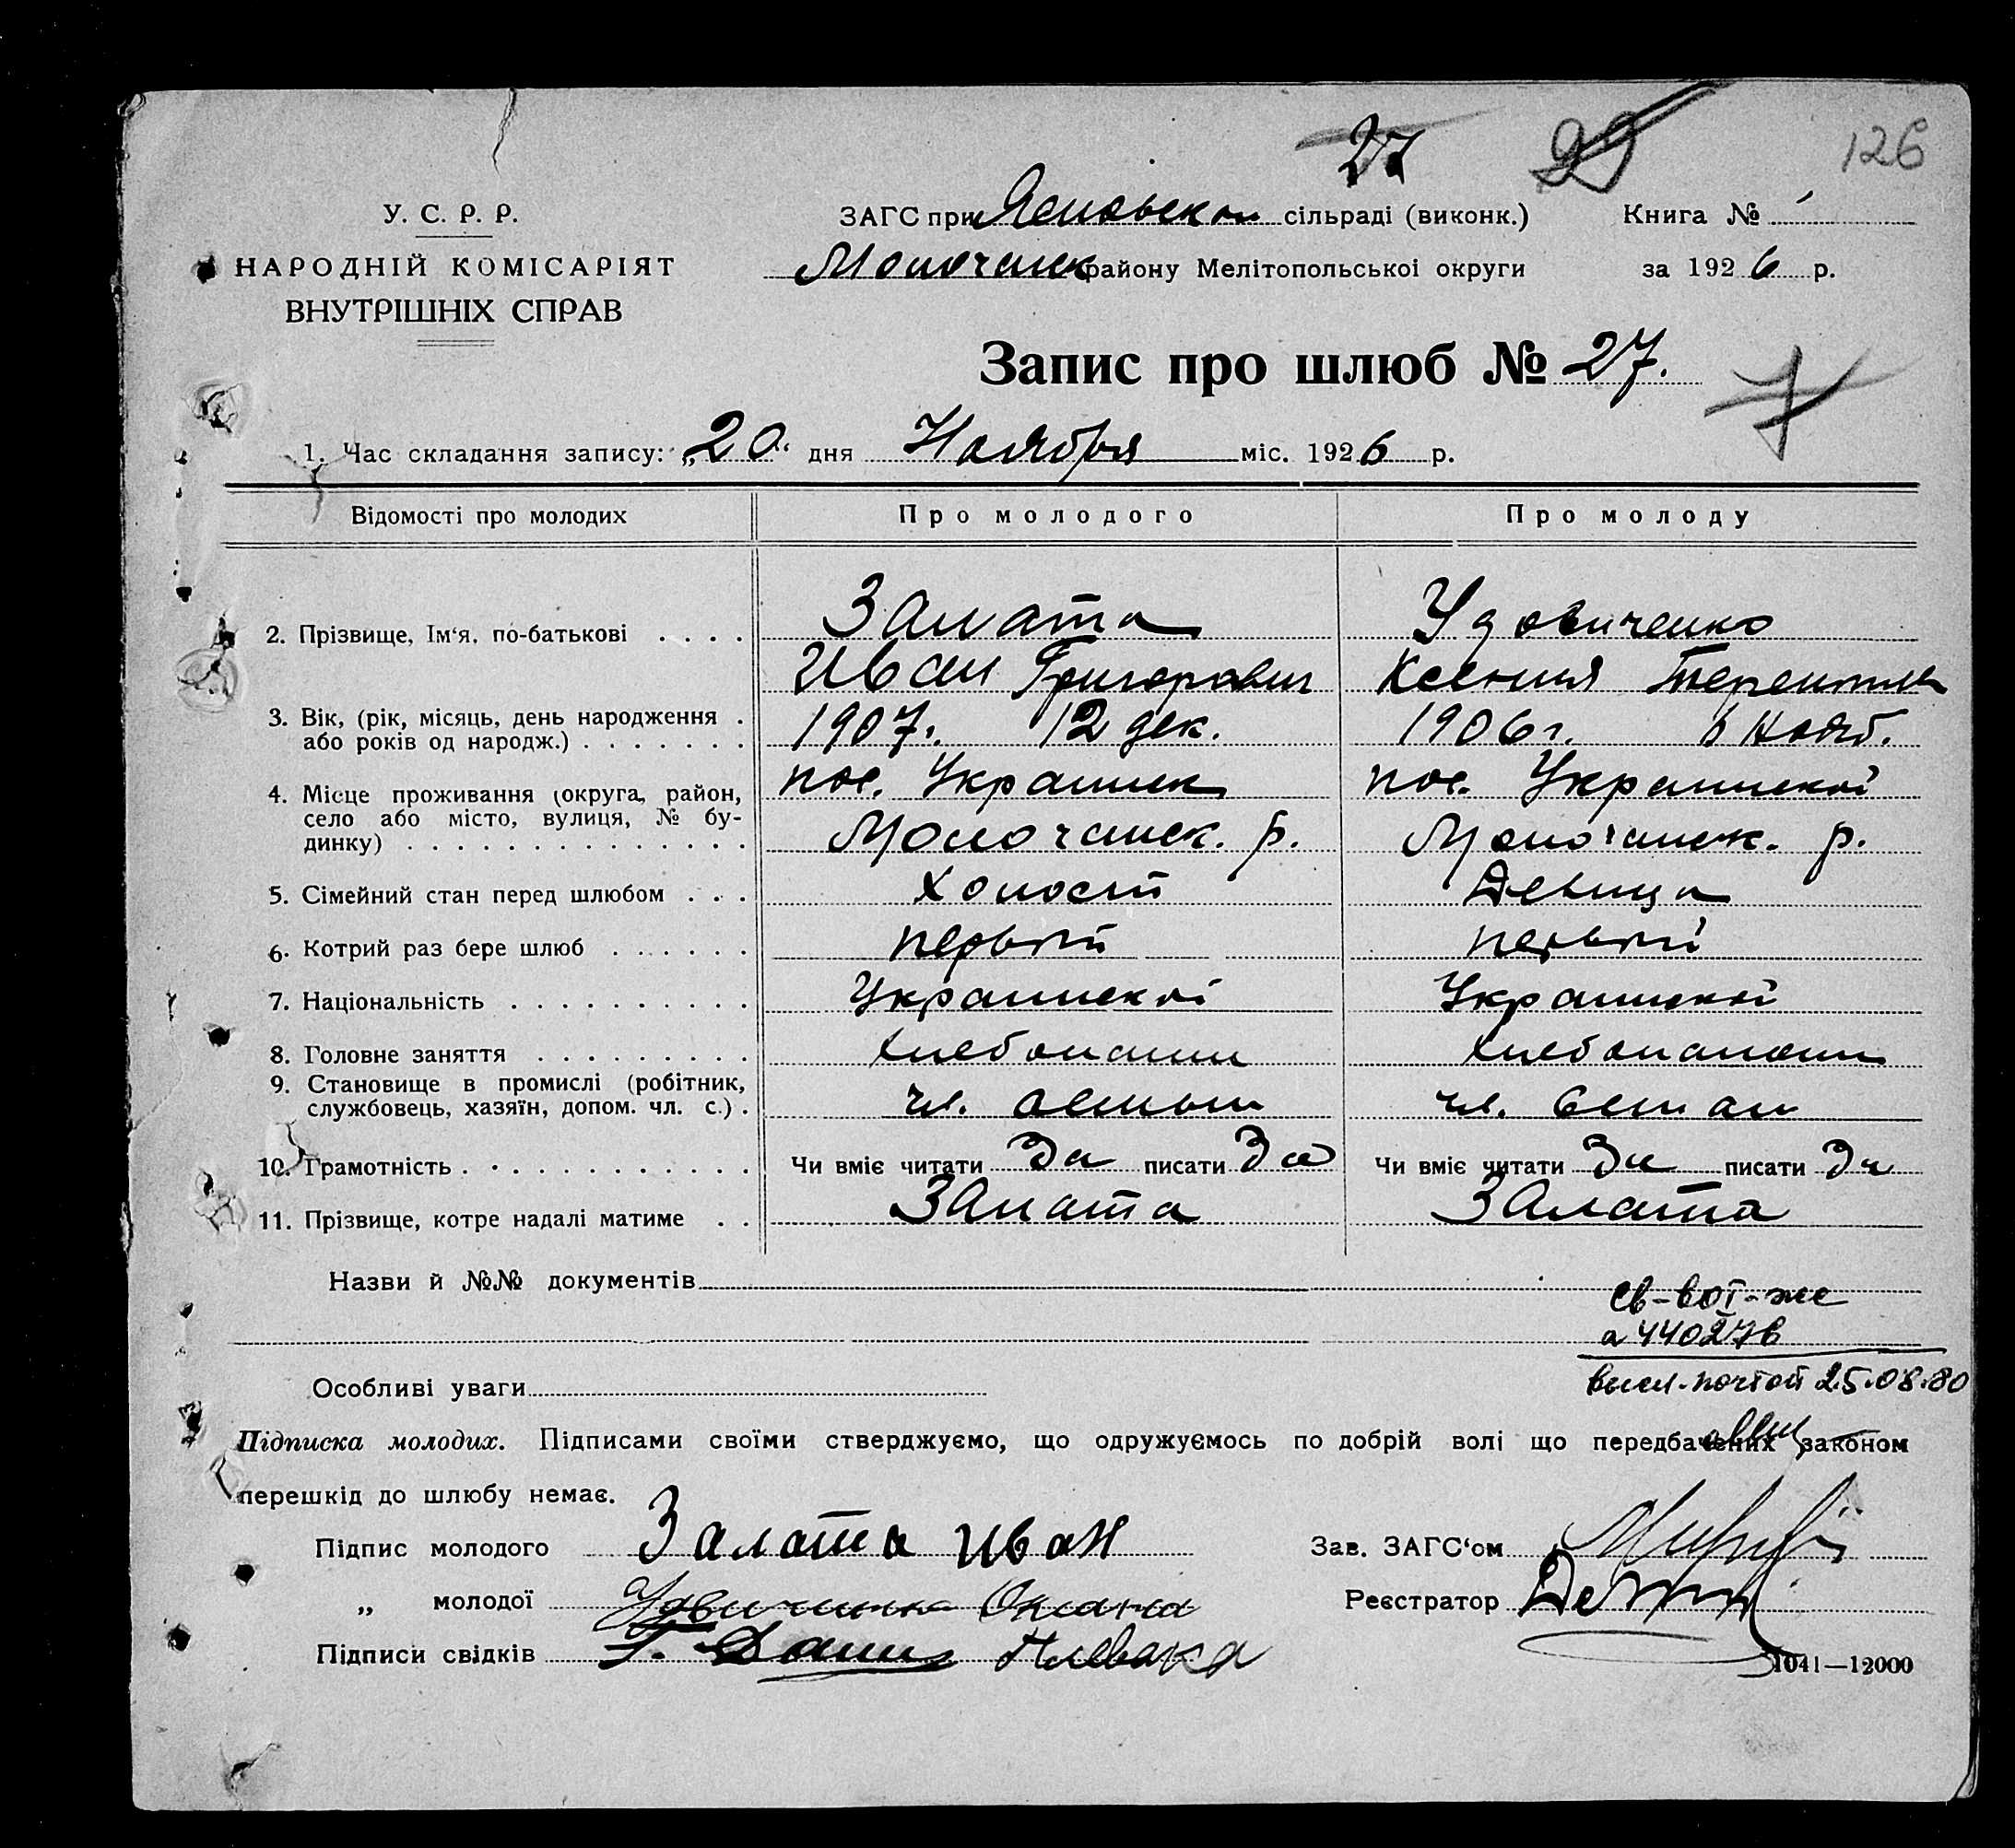 27 29 126
У. С. Р. Р.
ЗАГС при сільраді (виконк.) Книга №
НАРОДНІЙ КОМІСАРІЯТ
Молочанск району Мелітопольської округи за 1926 р.
ВНУТРІШНІХ СПРАВ
Запис про шлюб № 27.
7
1. Час складання запису: „20“ дня Ноября міс. 1926 р.
Відомості про молодих Про молодого Про молоду
2. Прізвище, Ім‘я, по-батькові . . . . Залата Удовиченко
Иван Григорович Ксения Терентив
3. Вік, (рік, місяць, день народження .
або років од народж.) . . . . . . . 1907г. 12 дек. 1906г. Нояб.
4. Місце проживання (округа, район, пос. Украинск пос. Украинской
село або місто, вулиця, № бу-
динку) . . . . . . . . . . . . . . Молочанск. р. Молочанск. р.
5. Сімейний стан перед шлюбом . . . Холостй Девица
6. Котрий раз бере шлюб . . . . . . первый первый
7. Національність . . . . . . . . . . Украинской Украинской
8. Головне заняття . . . . . . . . .
9. Становище в промислі (робітник,
службовець, хазяїн, допом. чл. с.) . чл. чл.
10. Грамотність . . . . . . . . . . . . Чи вміє читати Да писати Да Чи вміє читати Да писати Да
11. Прізвище, котре надалі матиме . . Залата Залата
Назви й №№ документів
а 440276
Особливі уваги
высл. почтой 25.08.80
Підписка молодих. Підписами своїми стверджуємо, що одружуємось по добрій волі що передбачених законом
перешкід до шлюбу немає.
Підпис молодого Залата Иван Зав. ЗАГС‘ом
„ молодої Оксана Реєстратор
Підписи свідків Плевака
1041—12000